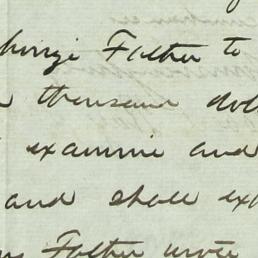 Father to
thousand dol
examine and
and shall ex
Father wrote